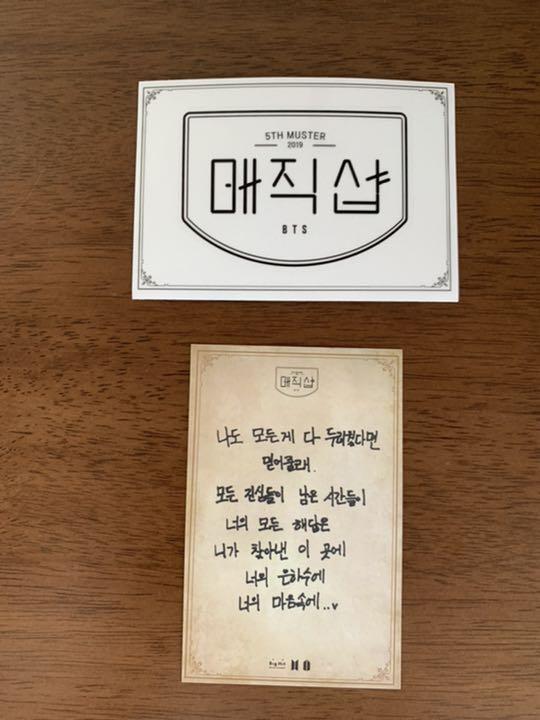 5TH MUSTER
2019
매직샵
BTS
매직샵
나도 모든게 다 두려웠다면
믿어줄래.
모든 진심들이 남은 시간들이
너의 모든 해답은
니가 찾아낸 이 곳에
너의 은하수에
너의 마음속에..v
Big Hit